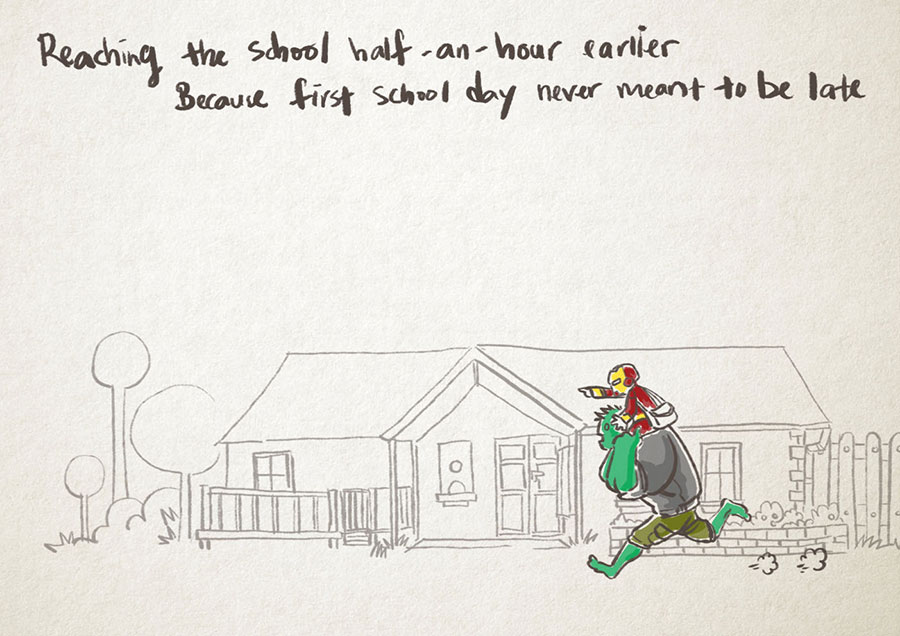 Reaching the school half-an-hour earlier
Because first school day never meant to be late